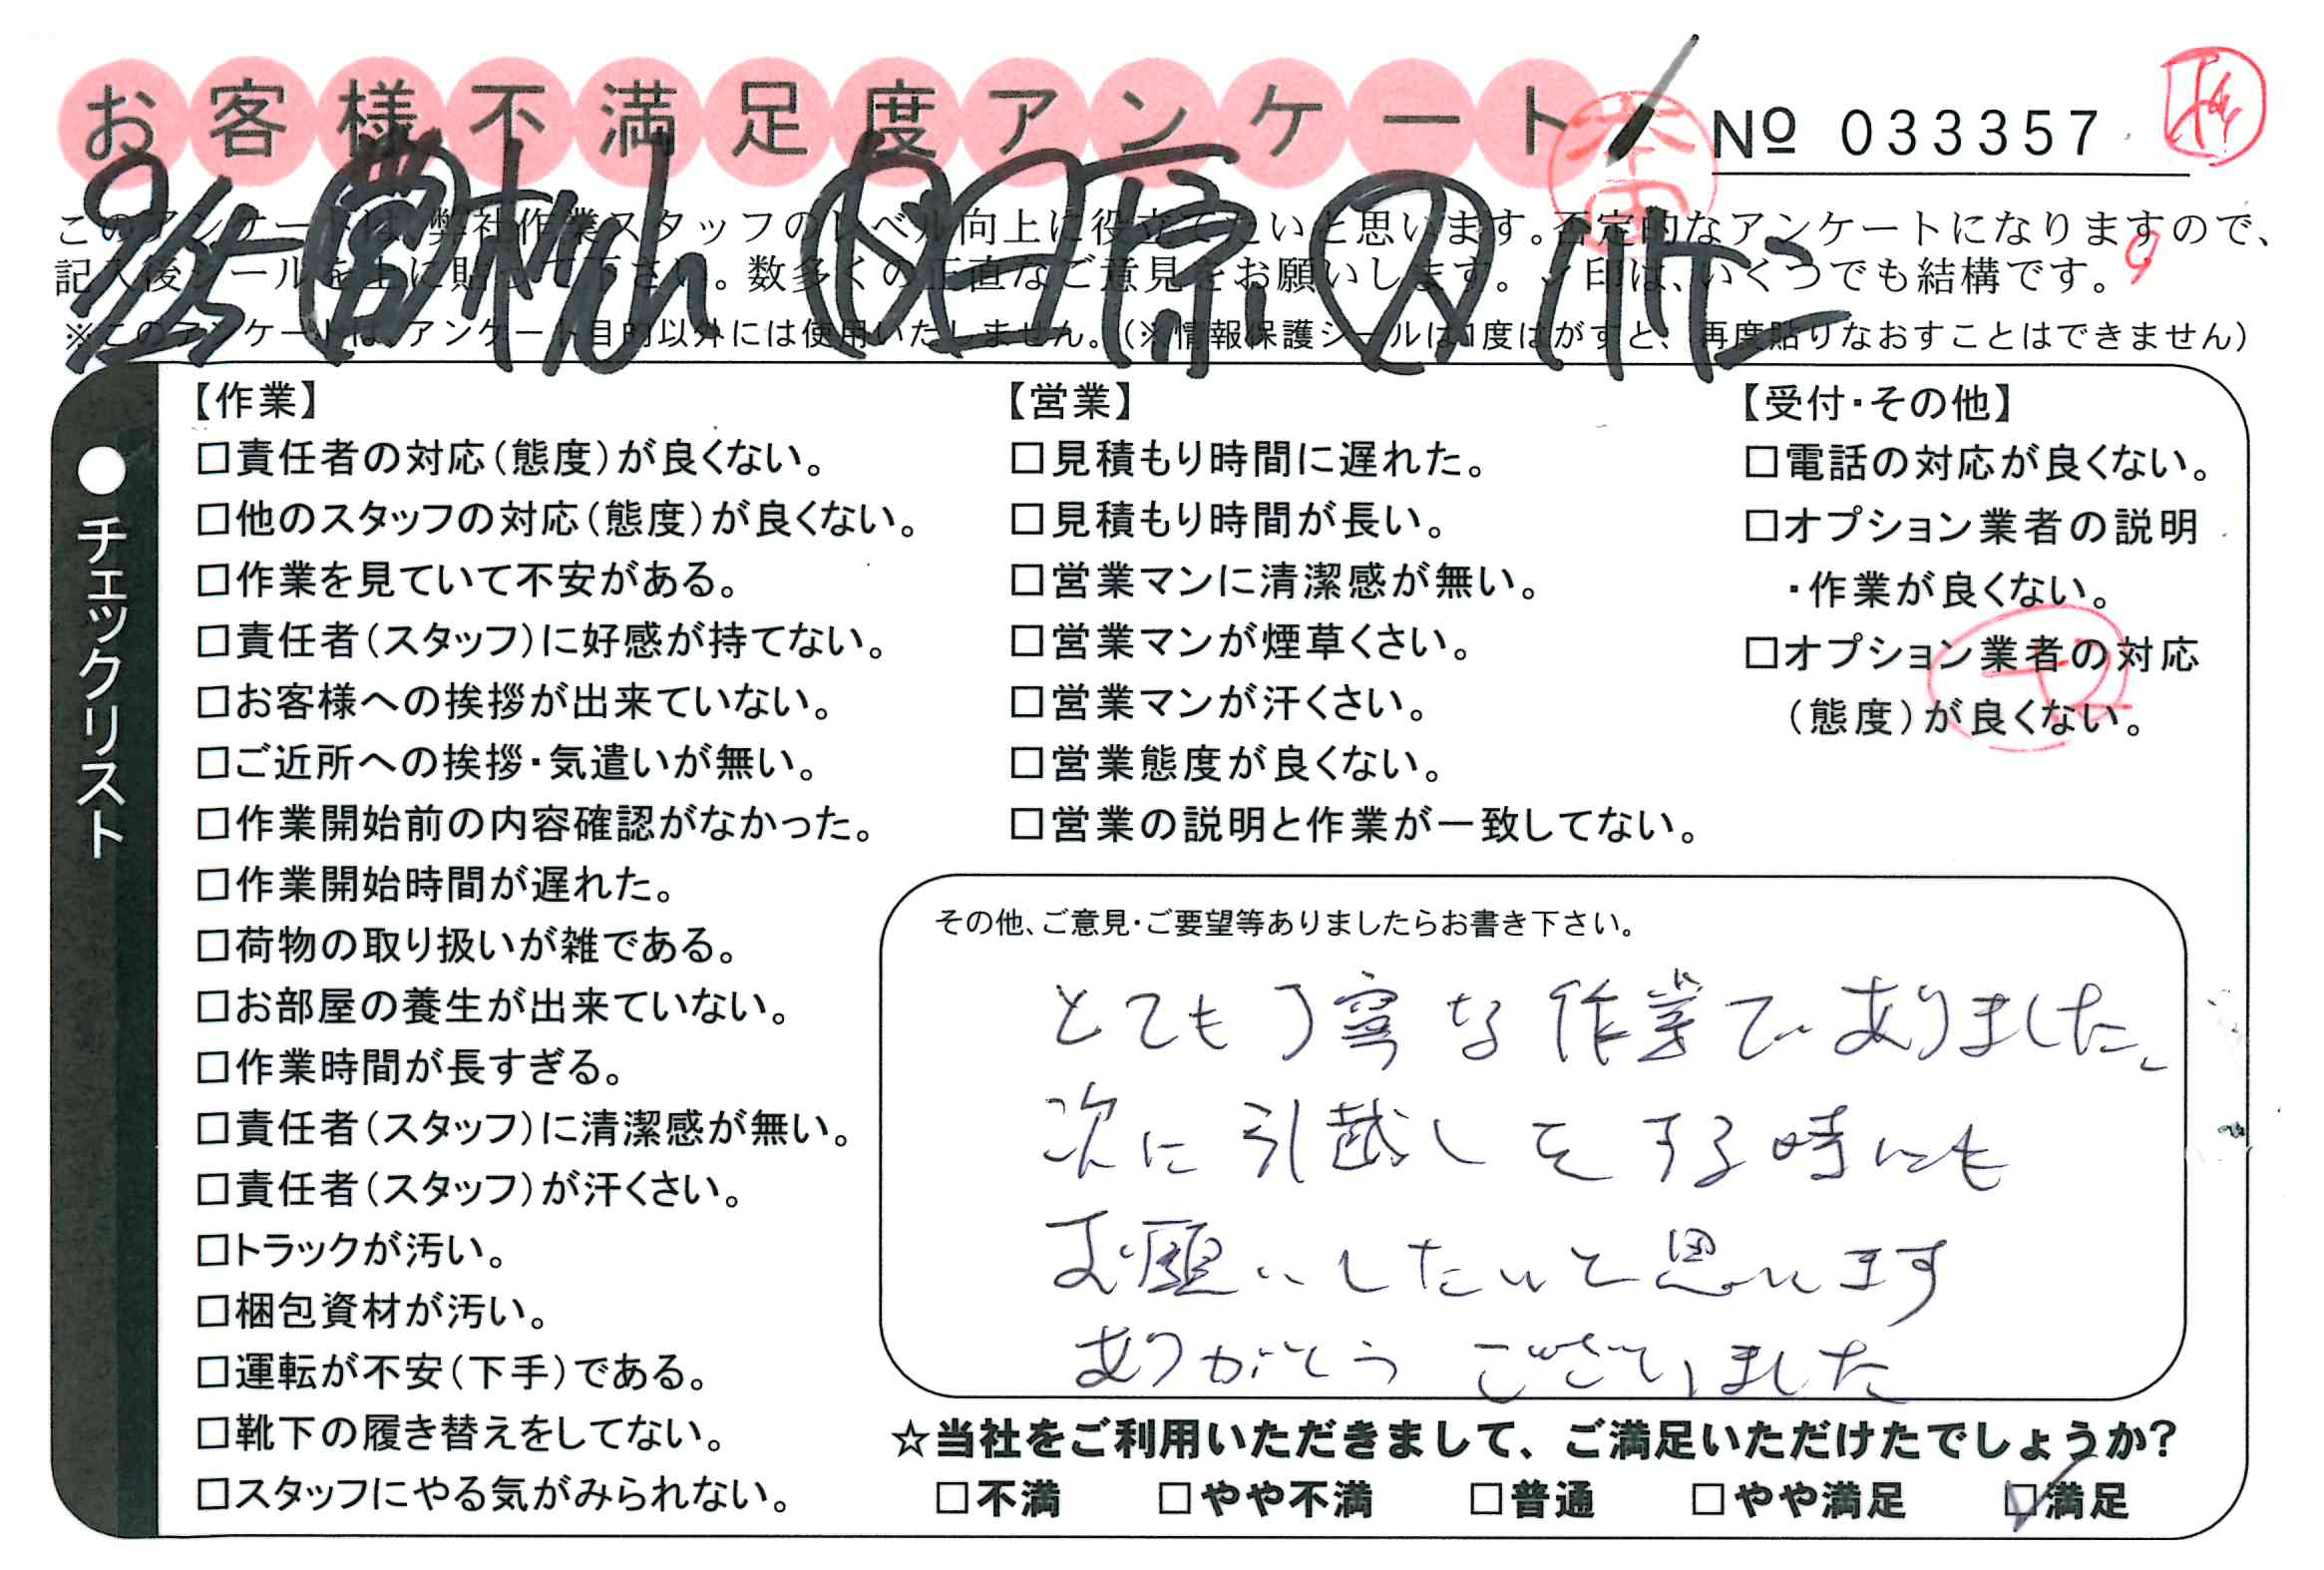 お客様不満足度アンケート
№ 033357
このアンケートは、弊社作業スタッフのレベル向上に役立てたいと思います。否定的なアンケートになりますので、
記入後シールを上に貼って下さい。数多くの正直なご意見をお願いします。✓印は、いくつでも結構です。
※このアンケートは、アンケート目的以外には使用いたしません。(※情報保護シールは1度はがすと、再度貼りなおすことはできません)
●チェックリスト
【作業】
□責任者の対応(態度)が良くない。
□他のスタッフの対応(態度)が良くない。
□作業を見ていて不安がある。
□責任者(スタッフ)に好感が持てない。
□お客様への挨拶が出来ていない。
□ご近所への挨拶・気遣いが無い。
□作業開始前の内容確認がなかった。
□作業開始時間が遅れた。
□荷物の取り扱いが雑である。
□お部屋の養生が出来ていない。
□作業時間が長すぎる。
□責任者(スタッフ)に清潔感が無い。
□責任者(スタッフ)が汗くさい。
□トラックが汚い。
□梱包資材が汚い。
□運転が不安(下手)である。
□靴下の履き替えをしてない。
□スタッフにやる気がみられない。
【営業】
□見積もり時間に遅れた。
□見積もり時間が長い。
□営業マンに清潔感が無い。
□営業マンが煙草くさい。
□営業マンが汗くさい。
□営業態度が良くない。
□営業の説明と作業が一致してない。
【受付・その他】
□電話の対応が良くない。
□オプション業者の説明
・作業が良くない。
□オプション業者の対応
(態度)が良くない。
その他、ご意見・ご要望等ありましたらお書き下さい。
とても丁寧な作業でありました。
次に引越しをする時にも
お願いしたいと思います
ありがとうございました
☆当社をご利用いただきまして、ご満足いただけたでしょうか?
□不満 □やや不満 □普通 □やや満足 ☑満足